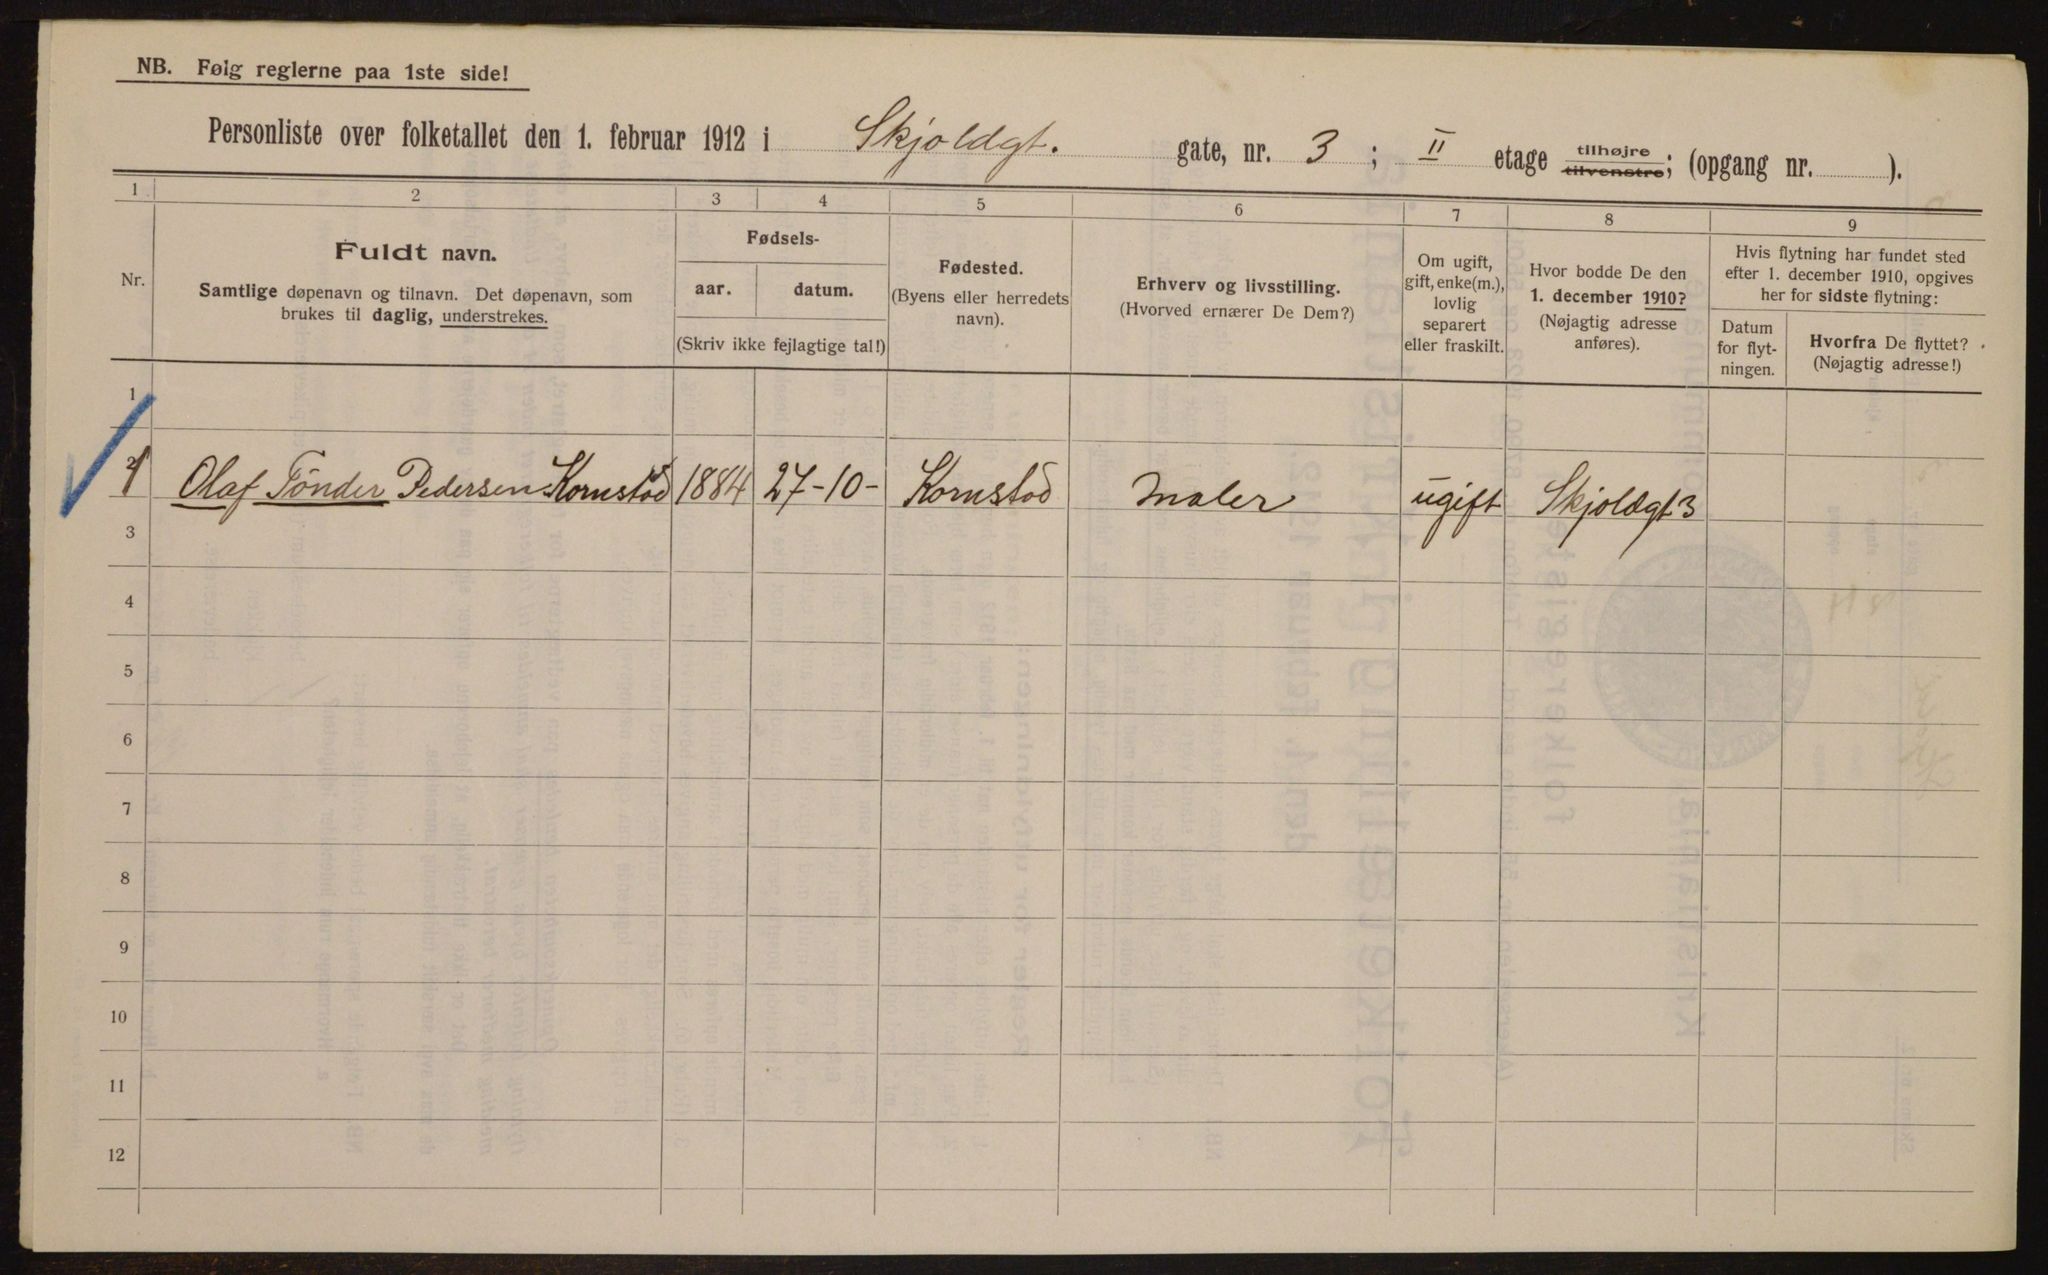 NB. Følg reglerne paa 1ste side!
Personliste over folketallet den 1. februar 1912 i Skjoldgt. gate, nr. 3 ; II etage tilhøjre tilvenstre; (opgang nr. ).
1 2 3 4 5 6 7 8 9
Nr.
Fuldt navn.
Samtlige døpenavn og tilnavn. Det døpenavn, som
brukes til daglig, understrekes.
Fødsels-
aar. datum.
(Skriv ikke fejlagtige tal!)
Fødested.
(Byens eller herredets
navn).
Erhverv og livsstilling.
(Hvorved ernærer De Dem?)
Om ugift,
gift, enke(m.),
lovlig
separert
eller fraskilt.
Hvor bodde De den
1. december 1910?
(Nøjagtig adresse
anføres).
Hvis flytning har fundet sted
efter 1. december 1910, opgives
her for sidste flytning:
Datum
for flyt-
ningen.
Hvorfra De flyttet?
(Nøjagtig adresse!)
1
1 Olaf Tönder Pedersen Kornstad 1884 27-10- Kornstad Maler ugift Skjoldgt 3
3
4
5
6
7
8
9
10
11
12